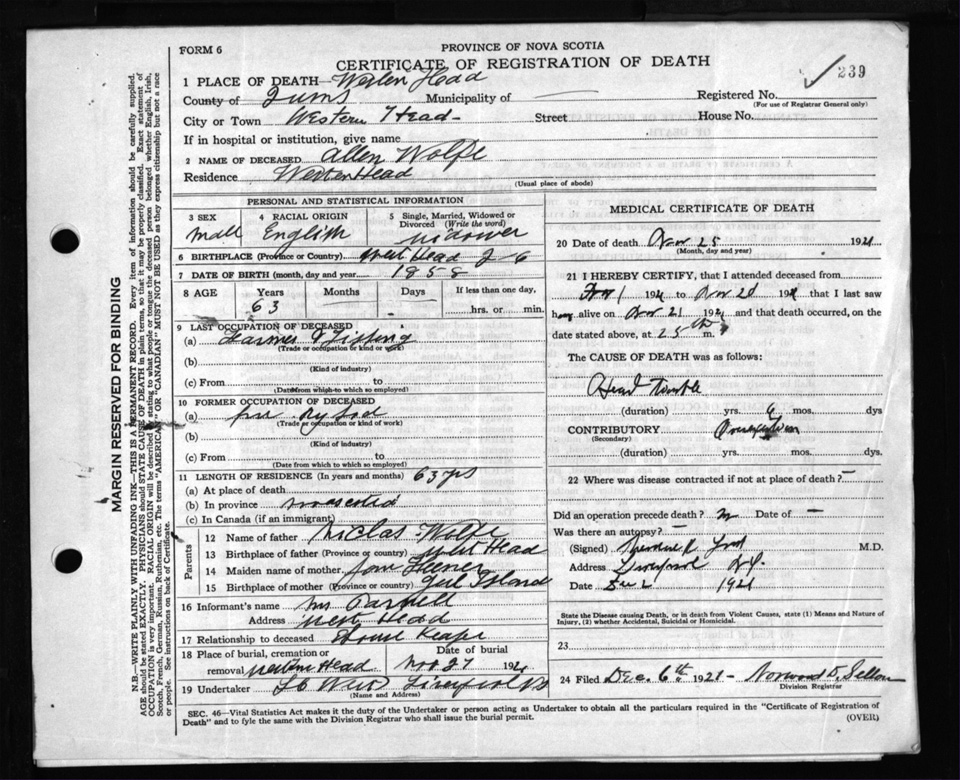 FORM 6
PROVINCE OF NOVA SCOTIA
CERTIFICATE OF REGISTRATION OF DEATH
239
1 PLACE OF DEATH— Western Head
County of Municipality of — Registered No.
(For use of Registrar General only)
City or Town Western Head- Street House No.
If in hospital or institution, give name
2 NAME OF DECEASED Allen Wolfe
Residence Western Head
(Usual place of abode)
PERSONAL AND STATISTICAL INFORMATION
3 SEX 4 RACIAL ORIGIN 5 Single, Married, Widowed or Divorced (Write the word)
Mall English widower
6 BIRTHPLACE (Province or Country) West Head
7 DATE OF BIRTH (month, day and year) 1858
8 AGE Years Months Days If less than one day,
63 hrs. or min.
9 LAST OCCUPATION OF DECEASED
(a) Farmer & Fishing
(Trade or occupation or kind of work)
(b)
(Kind of industry)
(c) From to
(Date from which to which so employed)
10 FORMER OCCUPATION OF DECEASED
(a)
(Trade or occupation or kind of work)
(b)
(Kind of industry)
(c) From to
(Date from which to which so employed)
11 LENGTH OF RESIDENCE (In years and months) 63 yrs
(a) At place of death
(b) In province
(c) In Canada (if an immigrant)
Parents
12 Name of father Wolfe
13 Birthplace of father (Province or country) West Head
14 Maiden name of mother
15 Birthplace of mother (Province or country) Island
16 Informant's name Mrs Parnell
Address West Head
17 Relationship to deceased House Keaper
18 Place of burial, cremation or removal Western Head
Date of burial Nov 27 1921
19 Undertaker Liverpool NS
(Name and Address)
MEDICAL CERTIFICATE OF DEATH
20 Date of death Nov 25 1921
(Month, day and year)
21 I HEREBY CERTIFY, that I attended deceased from
1 1921 to Nov 1921 that I last saw
h alive on Nov 21 1921 and that death occurred, on
the date stated above, at 25th m.
The CAUSE OF DEATH was as follows:
Heart Trouble
(duration) yrs. 6 mos. dys
CONTRIBUTORY
(Secondary)
(duration) yrs. mos. dys.
22 Where was disease contracted if not at place of death? —
Did an operation precede death? no Date of —
Was there an autopsy? —
(Signed) M.D.
Address Liverpool N.S.
Date Dec 1921
State the Disease causing Death, or in death from Violent Causes, state (1) Means and Nature of Injury, (2) whether Accidental, Suicidal or Homicidal.
23
24 Filed Dec. 6th 1921-
Division Registrar
SEC. 46—Vital Statistics Act makes it the duty of the Undertaker or person acting as Undertaker to obtain all the particulars required in the "Certificate of Registration of
Death" and to fyle the same with the Division Registrar who shall issue the burial permit.
(OVER)
MARGIN RESERVED FOR BINDING
N.B.—WRITE PLAINLY WITH UNFADING INK—THIS IS A PERMANENT RECORD. Every item of information should be carefully supplied.
AGE should be stated EXACTLY. PHYSICIANS should STATE CAUSE OF DEATH in plain terms, so that it may be properly classified. Exact statement of
OCCUPATION is very important. RACIAL ORIGIN will be described by stating to what people or tongue the deceased person belonged whether English, Irish,
Scotch, French, German, Russian, Ruthenian, etc. The terms "AMERICAN" OR "CANADIAN" MUST NOT BE USED as they express citizenship but not a race
or people. See instructions on back of Certificate.